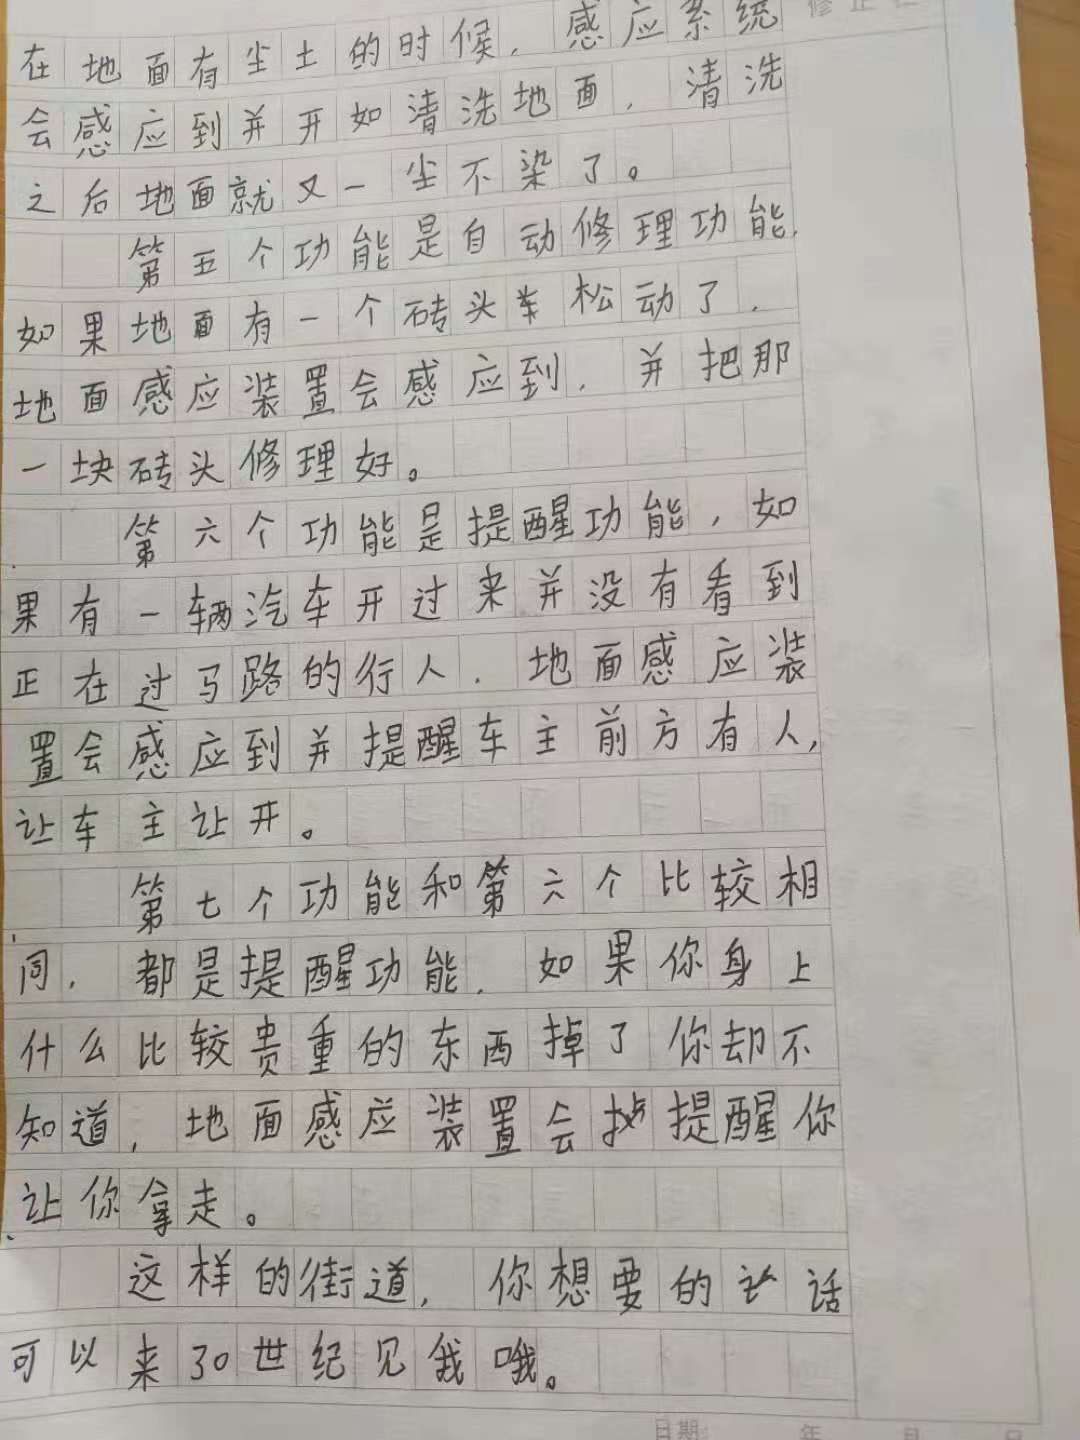 修正栏
在地面有尘土的时候，感应系统
会感应到并开如清洗地面，清洗
之后地面就又一尘不染了。
第五个功能是自动修理功能，
如果地面有一个砖头松动了，
地面感应装置会感应到，并把那
一块砖头修理好。
第六个功能是提醒功能，如
果有一辆汽车开过来并没有看到
正在过马路的行人，地面感应装
置会感应到并提醒车主前方有人，
让车主让开。
第七个功能和第六个比较相
同，都是提醒功能，如果你身上
什么比较贵重的东西掉了你却不
知道，地面感应装置会提醒你
让你拿走。
这样的街道，你想要的话
可以来30世纪见我哦。
日期： 年 月 日